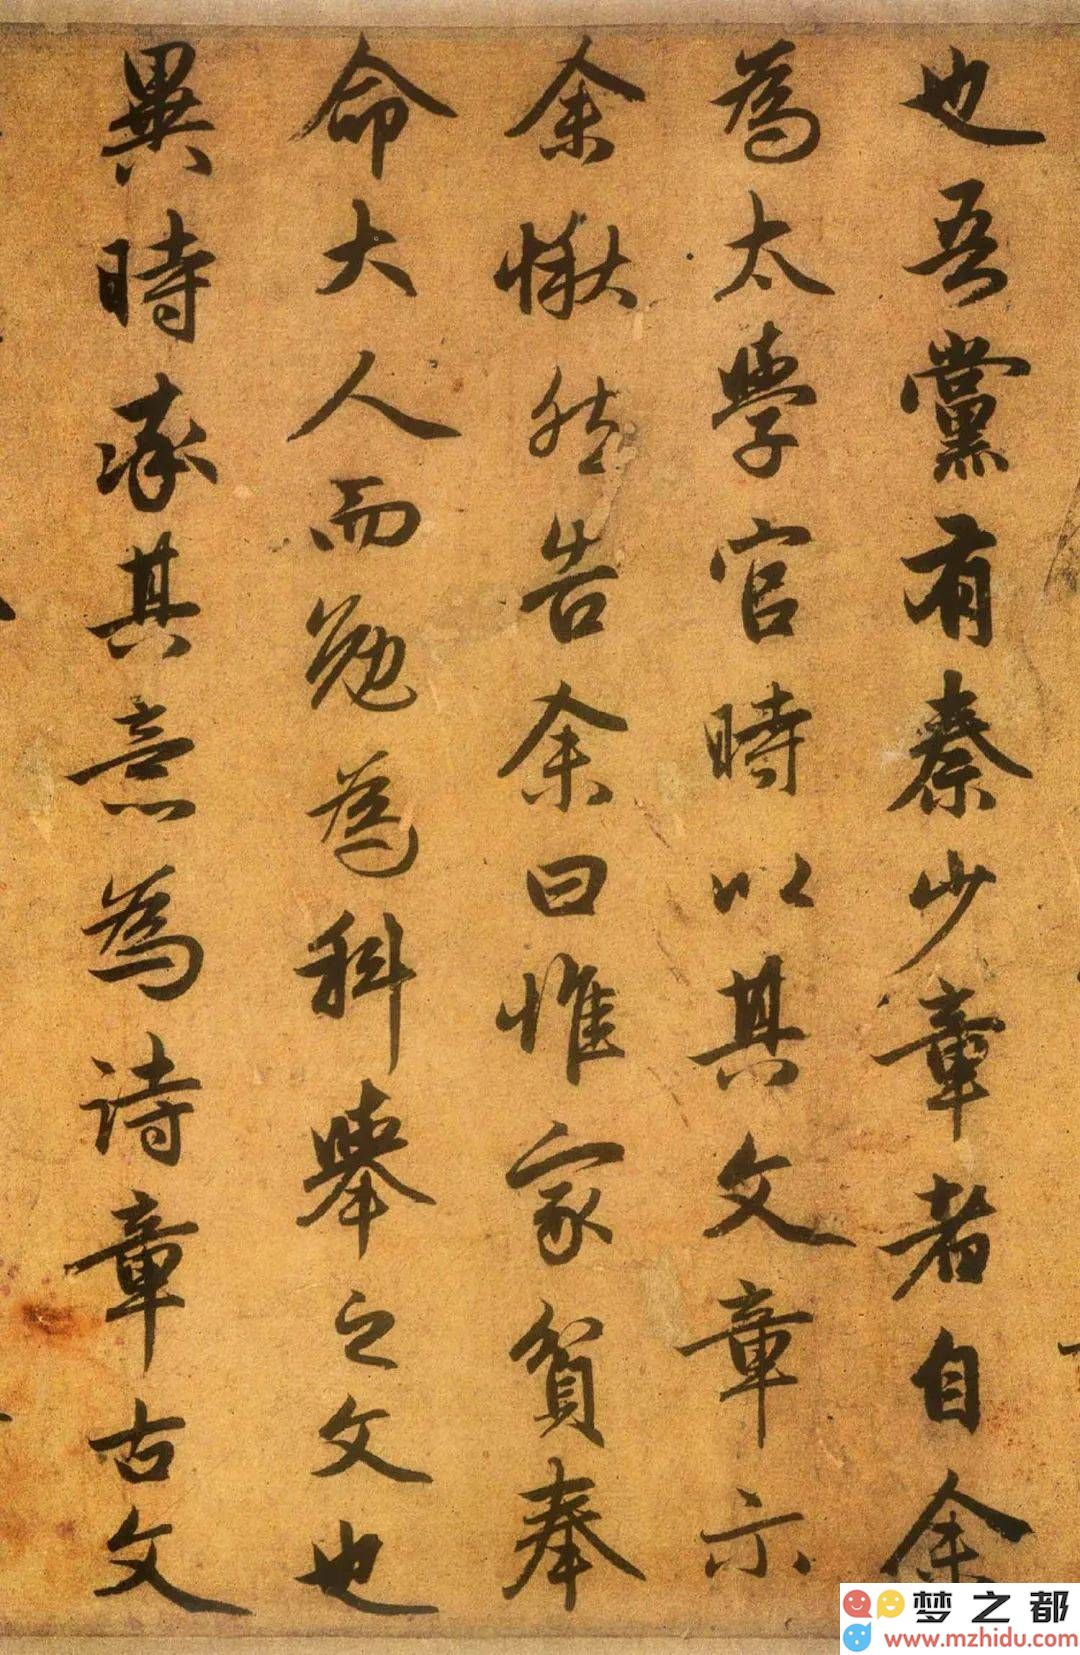 也吾黨有秦少章者自余
為太學官時以其文章示
余愀然告余曰惟家貧奉
命大人而勉為科舉之文也
異時率其意為詩章古文
梦之都
www.mzhidu.com